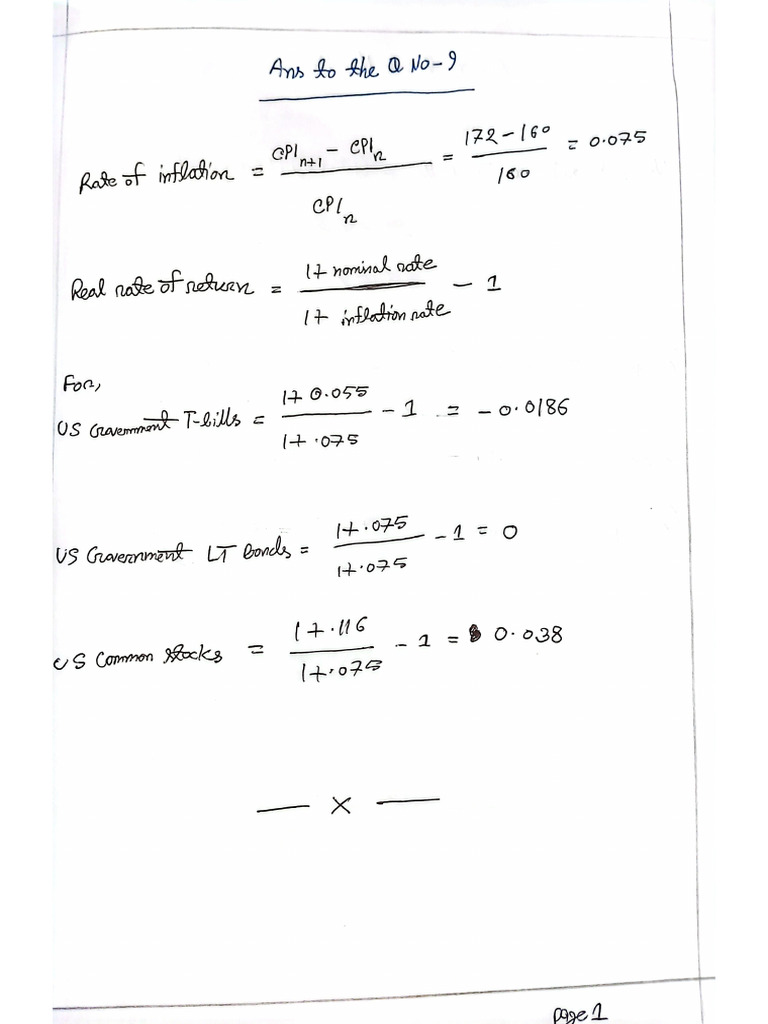 Ans to the Q No-9
Rate of inflation = (CPI_{n+1} - CPI_n) / CPI_n = (172-160) / 160 = 0.075
Real rate of return = (1+ nominal rate) / (1+ inflation rate) - 1
For,
US Government T-bills = (1+0.055) / (1+.075) - 1 = -0.0186
US Government LT bonds = (1+.075) / (1+.075) - 1 = 0
US Common stocks = (1+.116) / (1+.075) - 1 = 0.038
— X —
page 1